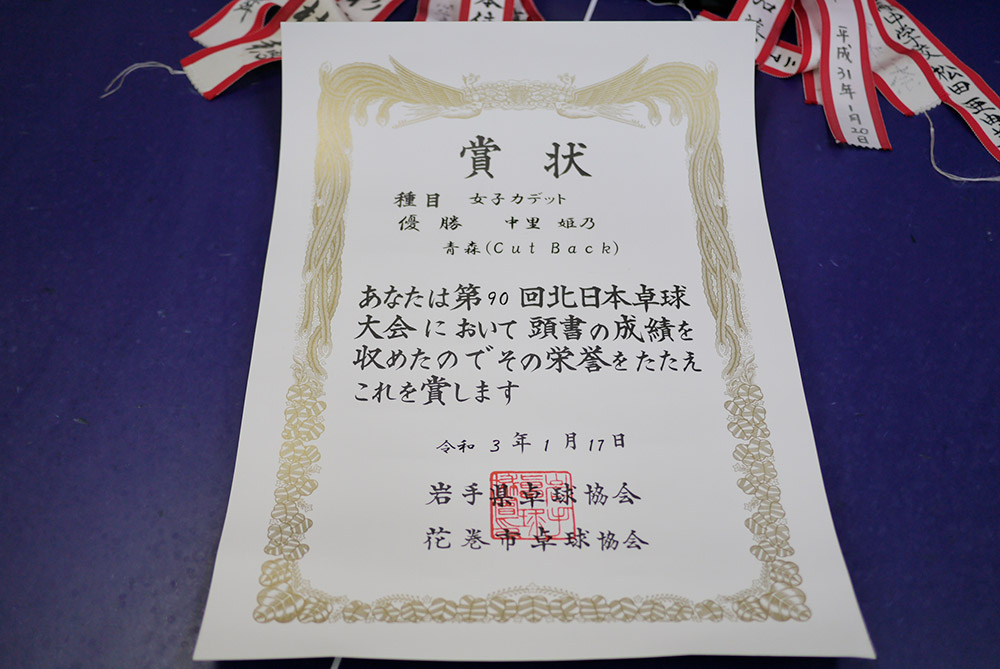 賞状
種目 女子カデット
優勝 中里 姫乃
青森(Cut Back)
あなたは第90回北日本卓球
大会において頭書の成績を
収めたのでその栄誉をたたえ
これを賞します
令和3年1月17日
岩手県卓球協会
花巻市卓球協会
平成31年1月20日